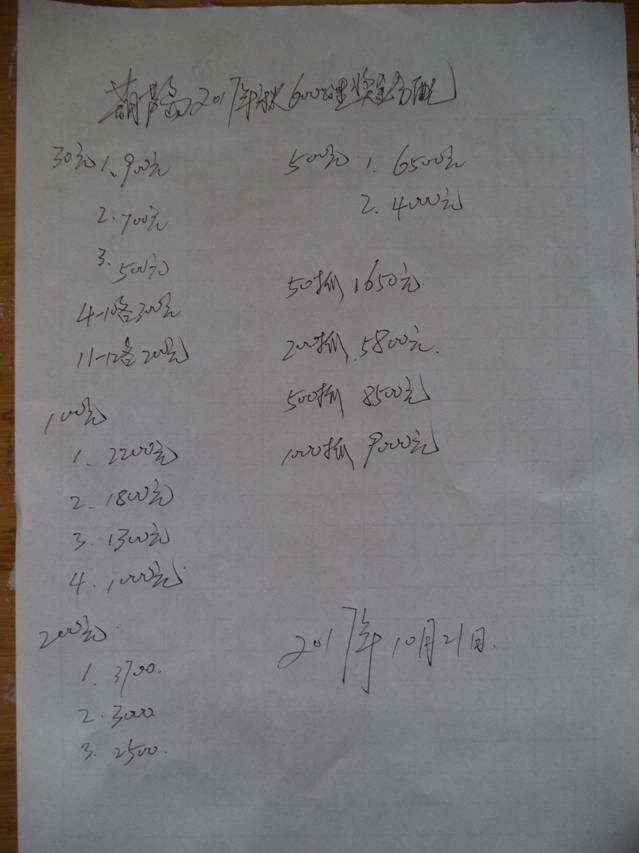 葫芦岛2017年秋600公里奖金分配
30元 1、900元
2. 700元
3. 500元
4-10名300元
11-12名200元
100元
1. 2200元
2. 1800元
3. 1300元
4. 1000元
200元
1. 3700.
2. 3000
3. 2500.
500元 1. 6500元
2. 4000元
50抓 1650元
200抓 5800元.
500抓 8500元
1000抓 9000元
2017年10月21日.